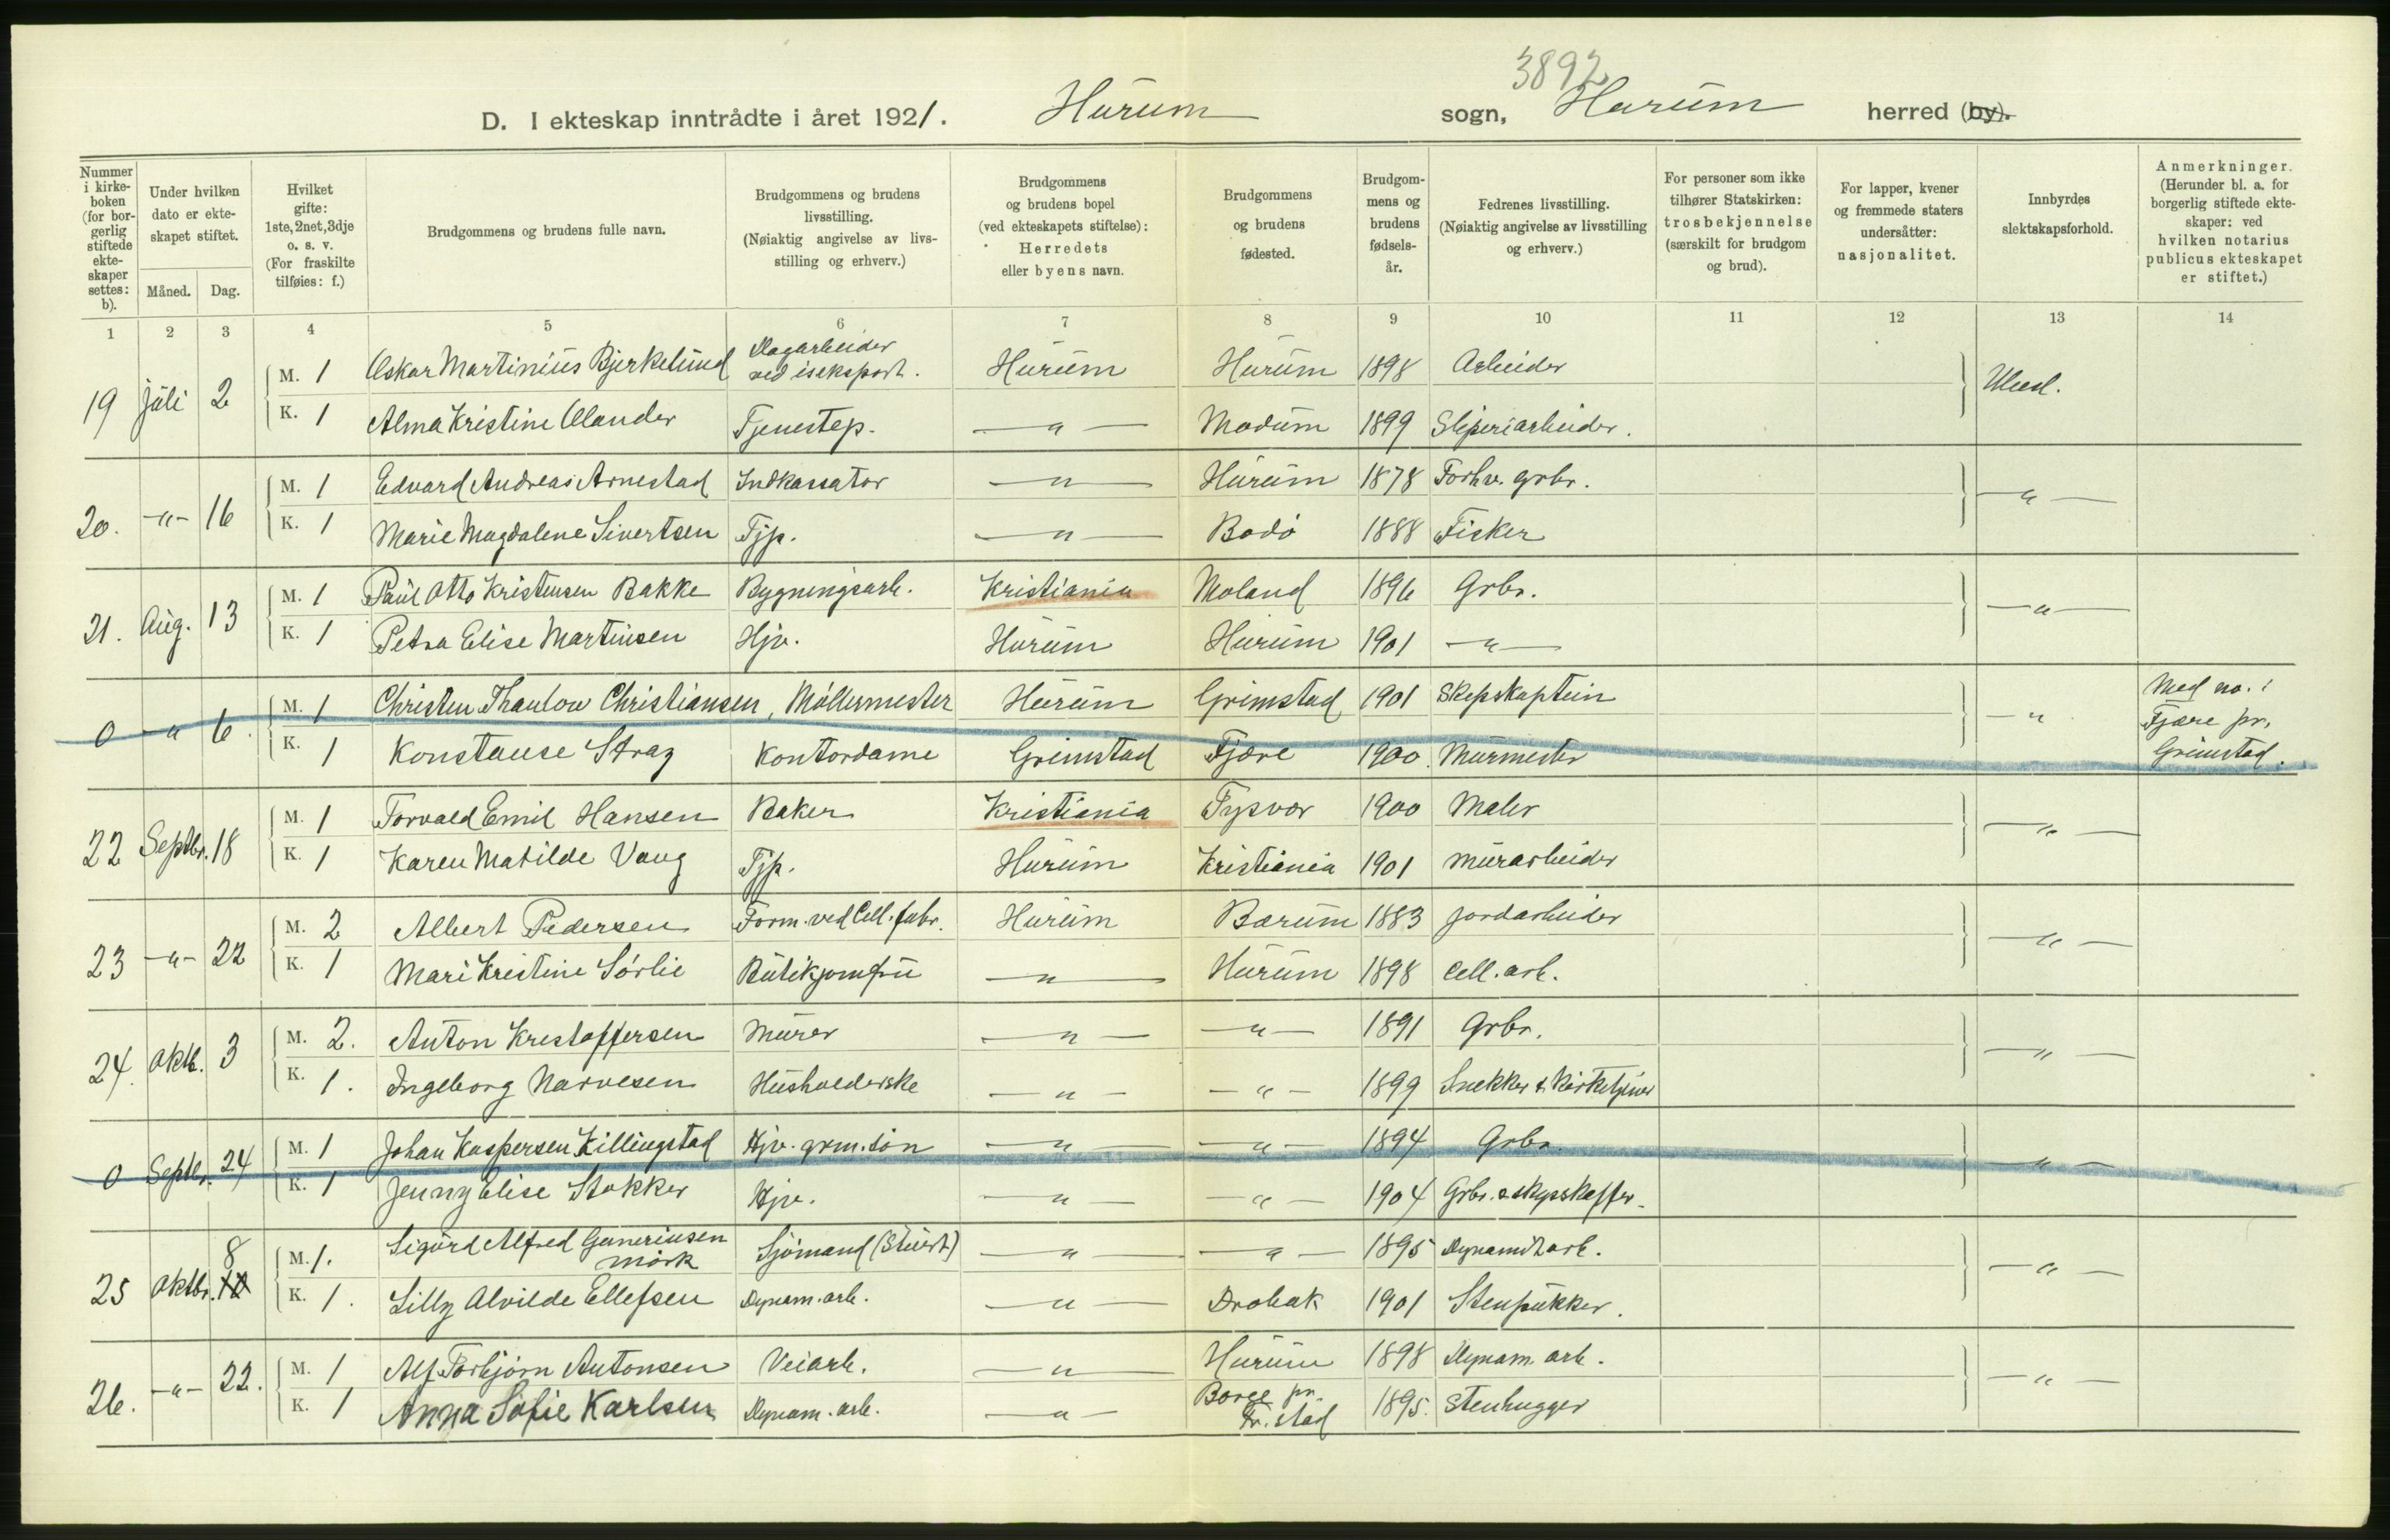 3892
D. I ekteskap inntrådte i året 1921. Hurum sogn, Hurum herred (by).
Nummer i kirke-boken (for bor-gerlig stiftede ekte-skaper settes: b).
Under hvilken dato er ekte-skapet stiftet.
Måned. Dag.
Hvilket gifte: 1ste, 2net, 3dje o. s. v. (For fraskilte tilføies: f.)
Brudgommens og brudens fulle navn.
Brudgommens og brudens livsstilling. (Nøiaktig angivelse av livs-stilling og erhverv.)
Brudgommens og brudens bopel (ved ekteskapets stiftelse): Herredets eller byens navn.
Brudgommens og brudens fødested.
Brudgom-mens og brudens fødsels-år.
Fedrenes livsstilling. (Nøiaktig angivelse av livsstilling og erhverv.)
For personer som ikke tilhører Statskirken: trosbekjennelse (særskilt for brudgom og brud).
For lapper, kvener og fremmede staters undersåtter: nasjonalitet.
Innbyrdes slektskapsforhold.
Anmerkninger. (Herunder bl. a. for borgerlig stiftede ekte-skaper: ved hvilken notarius publicus ekteskapet er stiftet.)
1 2 3 4 5 6 7 8 9 10 11 12 13 14
19 Juli 2 M. 1 Oskar Martinius Bjerkelund Dagarbeider ved iseksport. Hurum Hurum 1898 Arbeider Ubesl.
K. 1 Alma Kristine Olander Tjenestep. — " — Modum 1899 Sliperiarbeider.
20. — " — 16 M. 1 Edvard Andreas Arnestad Indkassator — " — Hurum 1878 Forhv. grbr. — " —
K. 1 Marie Magdalene Sivertsen Tjp. — " — Bodö 1888 Fisker
21. Aug. 13 M. 1 Paul Otto Kristensen Bakke Bygningsarb. Kristiania Moland 1896 Grbr. — " —
K. 1 Petra Elise Martinsen Hjv. Hurum Hurum 1901 — " —
0 — " 6 M. 1 Christen Thaulow Christiansen, Möllermester Hurum Grimstad 1901 Skipskaptein — " Med no. i Fjære pr. Grimstad.
K. 1 Konstanse Stray Kontordame Grimstad Fjære 1900. Murmester
22 Septbr. 18 M. 1 Torvald Emil Hansen Baker Kristiania Tysvær 1900 Maler — " —
K. 1 Karen Matilde Vang Tjp. Hurum Kristiania 1901 Murarbeider
23 — " — 22 M. 2 Albert Pedersen Form. ved Cell. fabr. Hurum Bærum 1883 Jordarbeider — " —
K. 1 Mari Kristine Sörlie Butikjomfru — " — Hurum 1898 Cell. arb.
24. Oktb. 3 M. 2. Anton Kristoffersen Murer — " — — " — 1891 Grbr. — " —
K. 1. Ingeborg Narvesen Husholderske — " — — " — 1899 Snekker & Kirketjener
0 Septbr. 24 M. 1 Johan Kaspersen Killingstad Hjv. grm. sön — " — — " — 1894 Grbr. — " —
K. 1 Jenny Elise Stokker Hjv. — " — — " — 1904 Grbr. & skysskaffer.
25 Oktbr. 8 12 M. 1. Sigurd Alfred Guneriusen Mörk Sjömand (Stuert) — " — — " — 1895 Dynamitarb. — " —
K. 1. Lilly Alvilde Ellefsen Dynam. arb. — " — Drobak 1901 Stenpukker.
26. — " — 22. M. 1 Alf Torbjörn Antonsen Veiarb. — " — Hurum 1898 Dynam. arb. — " —
K. 1 Anna Sofie Karlsen Dynam. arb. — " — Borge pr. Fr.stad 1895. Stenhugger